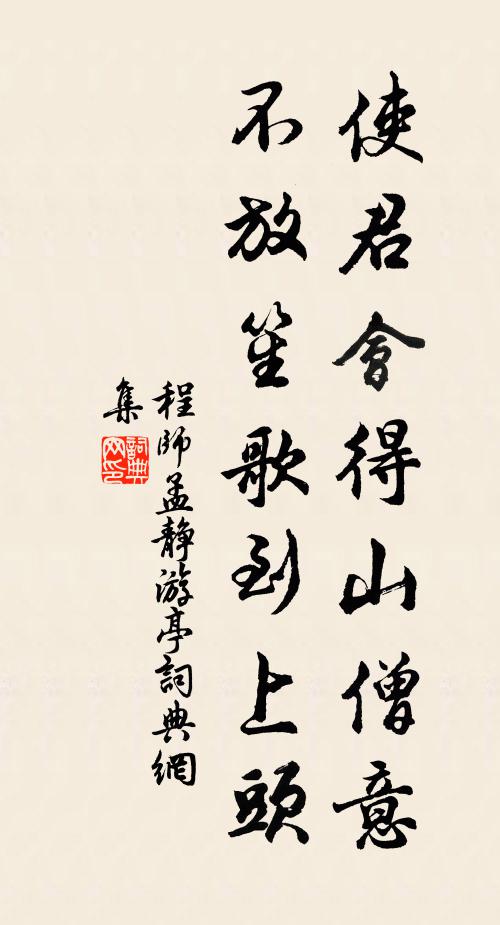 使君會得山僧意
不放笙歌到上頭
程師孟靜游亭詞典網
集
詞典
网印